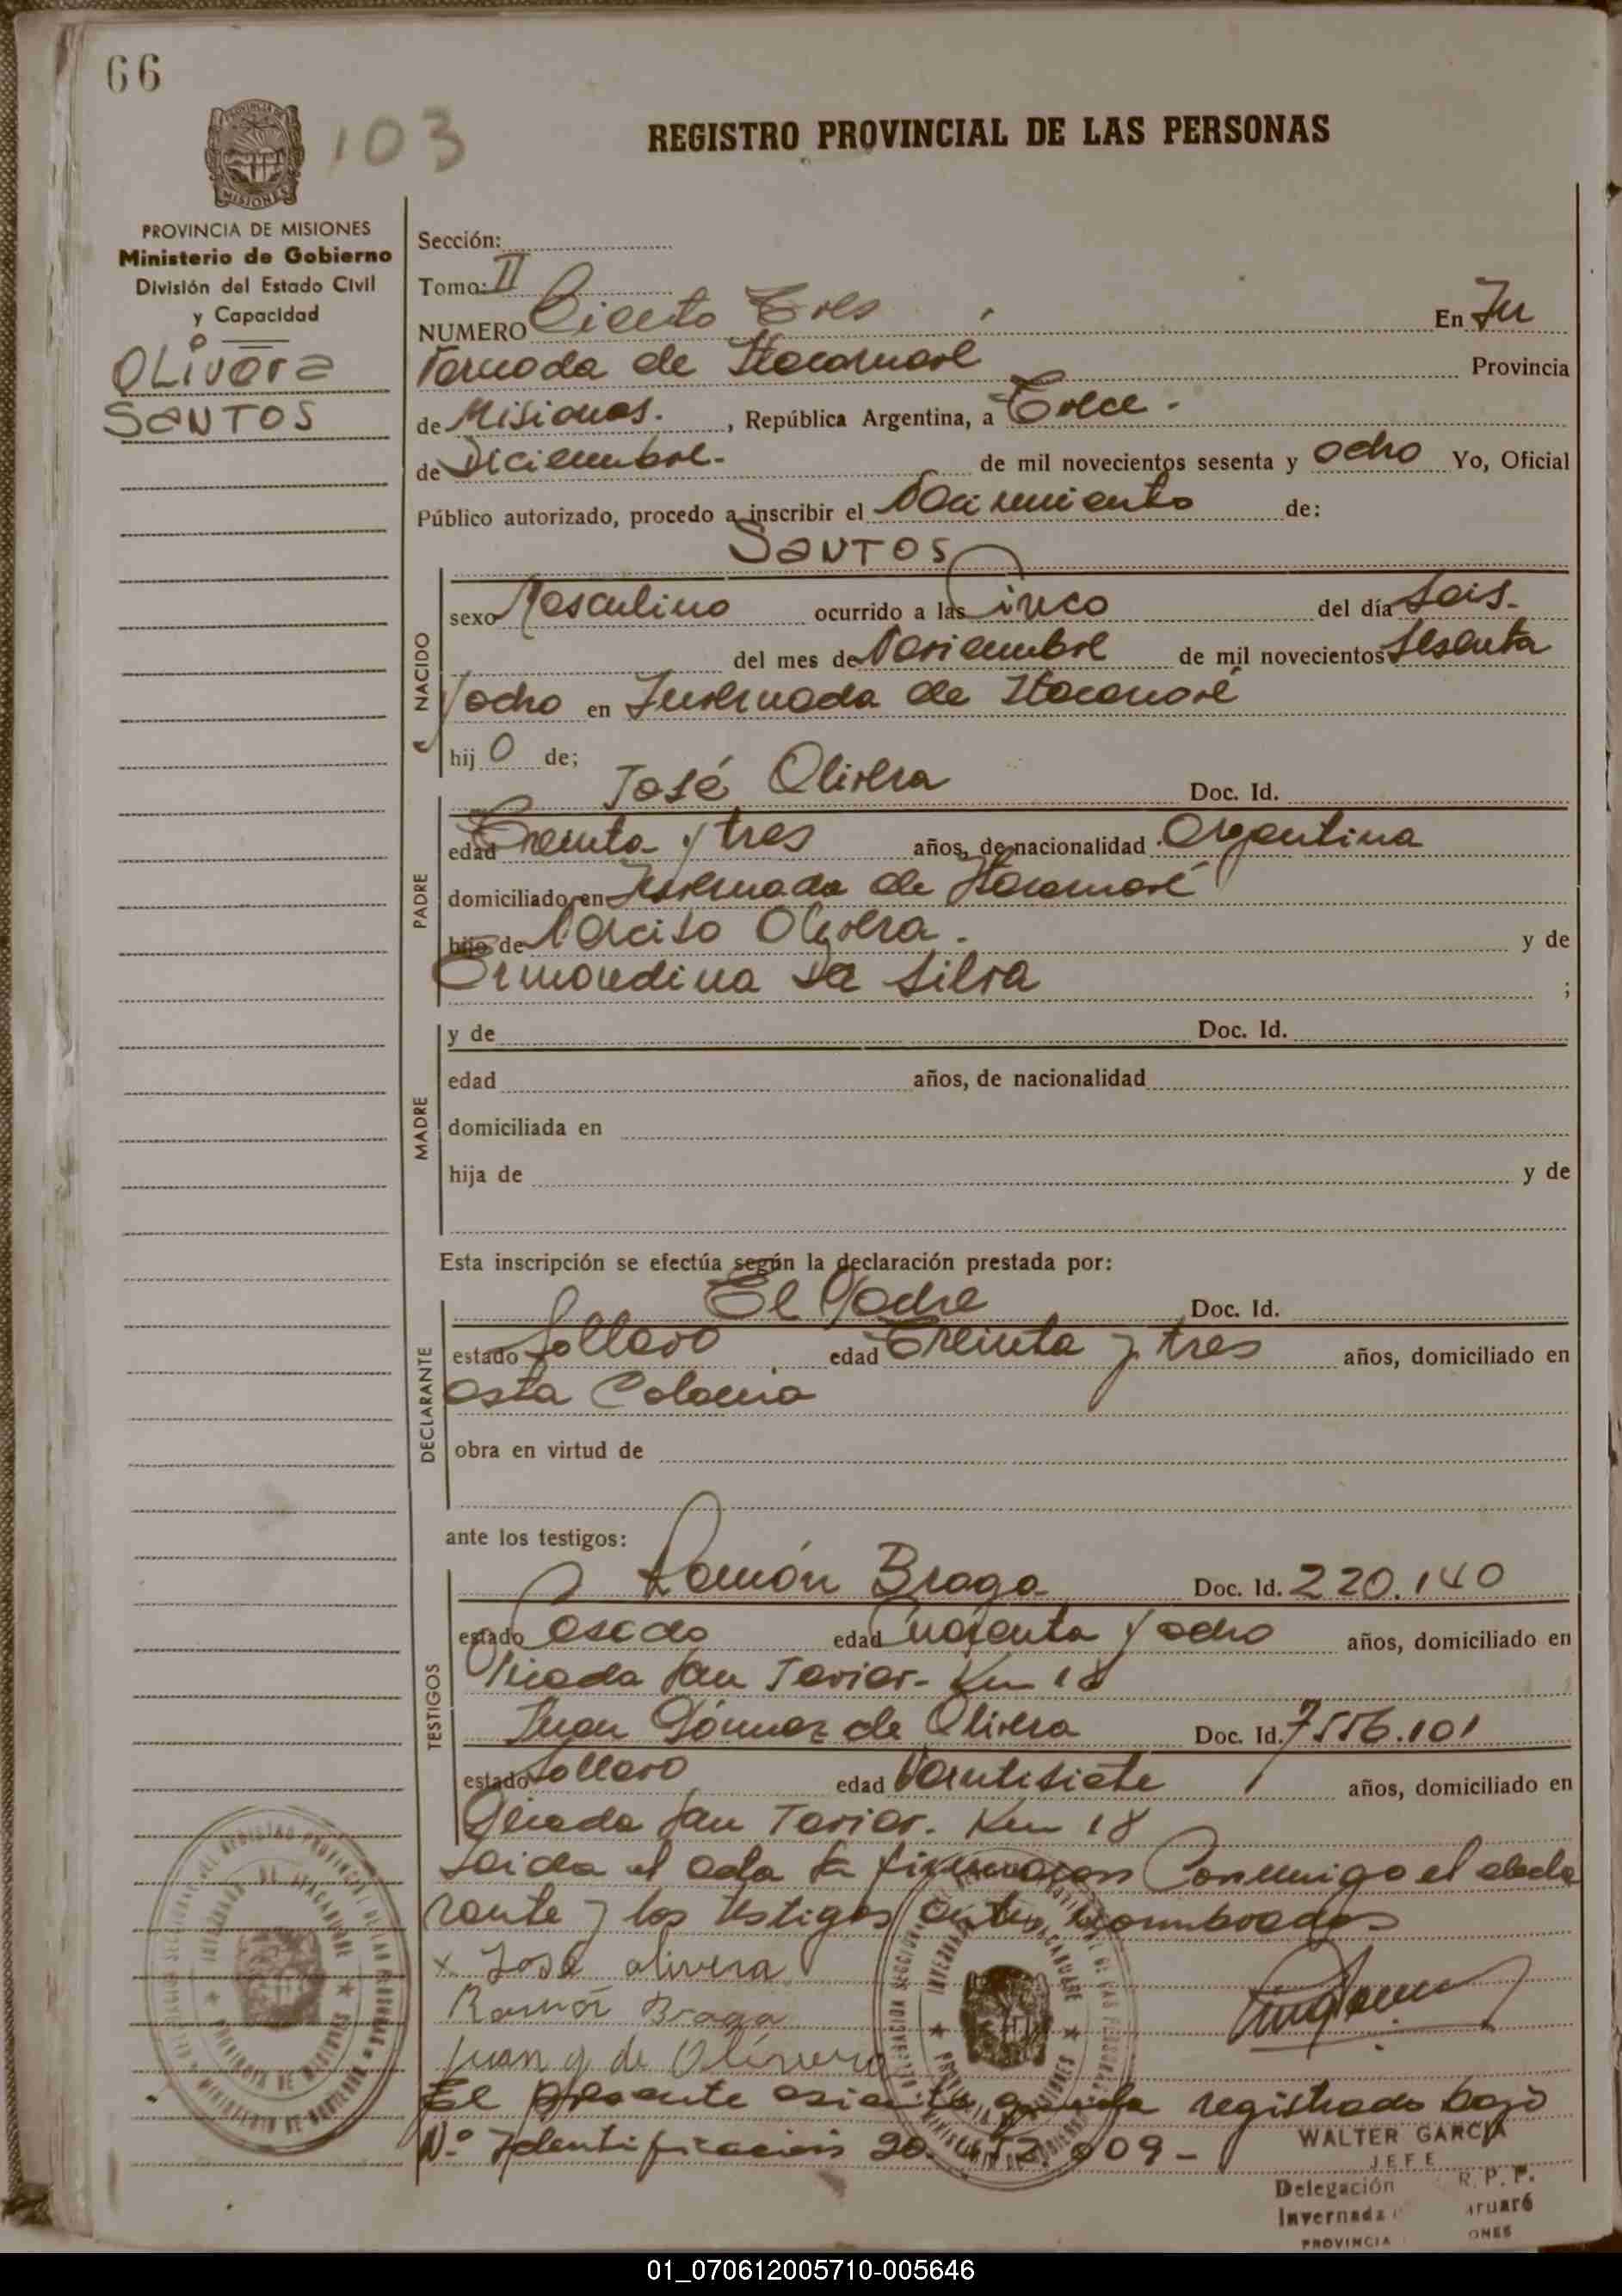 66
103
REGISTRO PROVINCIAL DE LAS PERSONAS
MISIONES
PROVINCIA DE MISIONES
Ministerio de Gobierno
División del Estado Civil
y Capacidad
OLivera
SANTOS
Sección:
Tomo: II
NUMERO Ciento Tres
En In
vernada de Itacaruaré Provincia
de Misiones. , República Argentina, a Trece.
de Diciembre. de mil novecientos sesenta y ocho Yo, Oficial
Público autorizado, procedo a inscribir el Nacimiento de:
SANTOS
NACIDO
sexo Masculino ocurrido a las Cinco del día Seis.
del mes de Noviembre de mil novecientos Sesenta
y ocho en Invernada de Itacaruaré
hij o de;
PADRE
José Olivera Doc. Id.
edad Treinta y tres años, de nacionalidad Argentina
domiciliado en Invernada de Itacaruaré
hijo de Narciso Olivera. y de
Ermondina da Silva ;
MADRE
y de Doc. Id.
edad años, de nacionalidad
domiciliada en
hija de y de
Esta inscripción se efectúa según la declaración prestada por:
DECLARANTE
El Padre Doc. Id.
estado Soltero edad Treinta y tres años, domiciliado en
esta Colonia
obra en virtud de
ante los testigos:
TESTIGOS
Ramón Braga Doc. Id. 220.140
estado Casado edad Cuarenta y ocho años, domiciliado en
Picada San Javier. Km 18
Juan Gómez de Olivera Doc. Id. 7556.101
estado Soltero edad Veintisiete años, domiciliado en
Picada San Javier. Km 18
Leida el acta la firmaron Conmigo el decla
rante y los testigos antes nombrados
x José olivera
Ramón Braga
Juan g de Olivera
El presente asiento queda registrado bajo
N.º Identificación 20. 009-
WALTER GARCIA
JEFE
Delegación R. P. P.
Invernada aruaré
PROVINCIA ONES
01_070612005710-005646